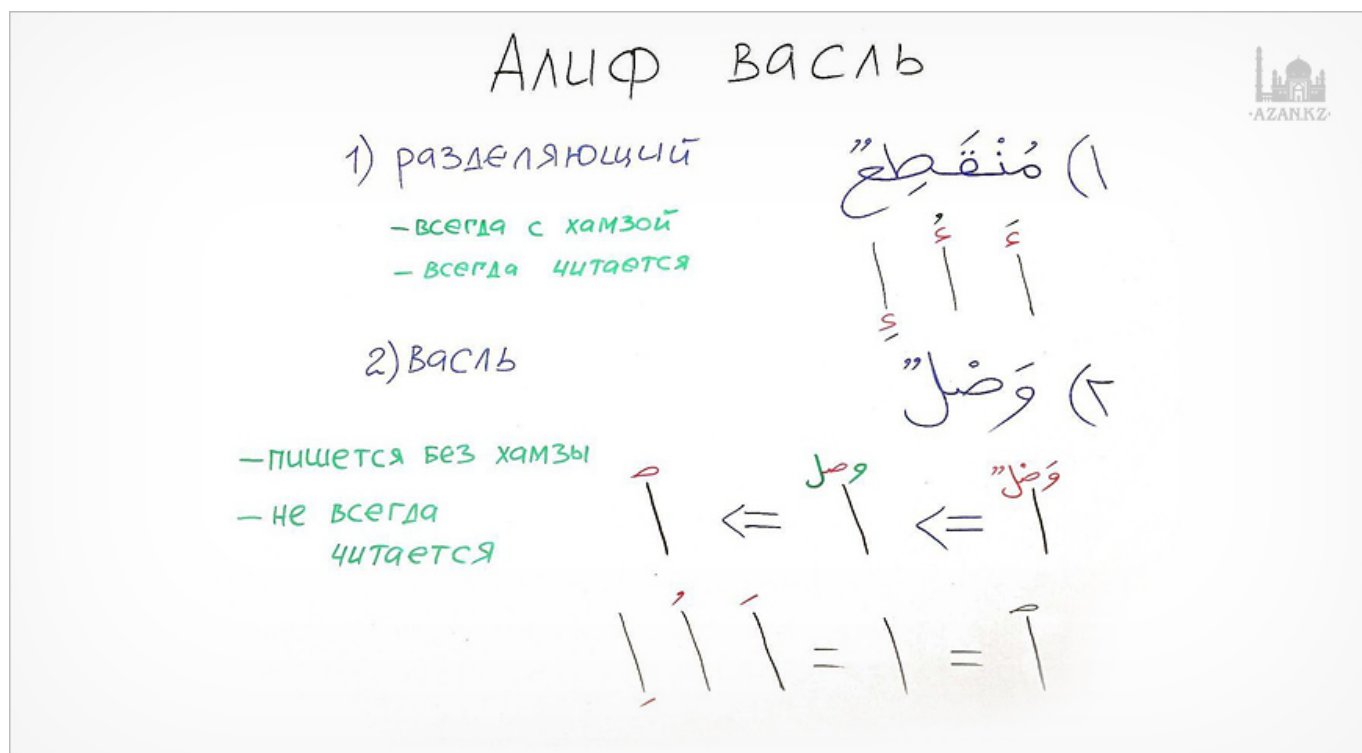 Алиф васль
·AZAN.KZ·
1) разделяющий
١) مُنْقَطِعٌ
– всегда с хамзой
– всегда читается
أَ أُ إِ
2) васль
٢) وَصْلٌ
– пишется без хамзы
– не всегда
читается
وَصْلٌ ا <= وصل ا <= ٱ
ٱ = ا = اَ اُ اِ